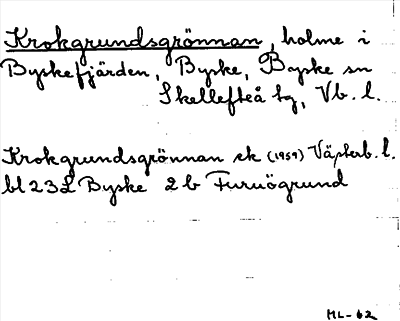 Krokgrundsgrönnan, holme i
Byskefjärden, Byske, Byske sn
Skellefteå tg, Vb. l.
Krokgrundsgrönnan ek (1959) Västerb. l.
bl 23L Byske 2b Furuögrund
ML-62